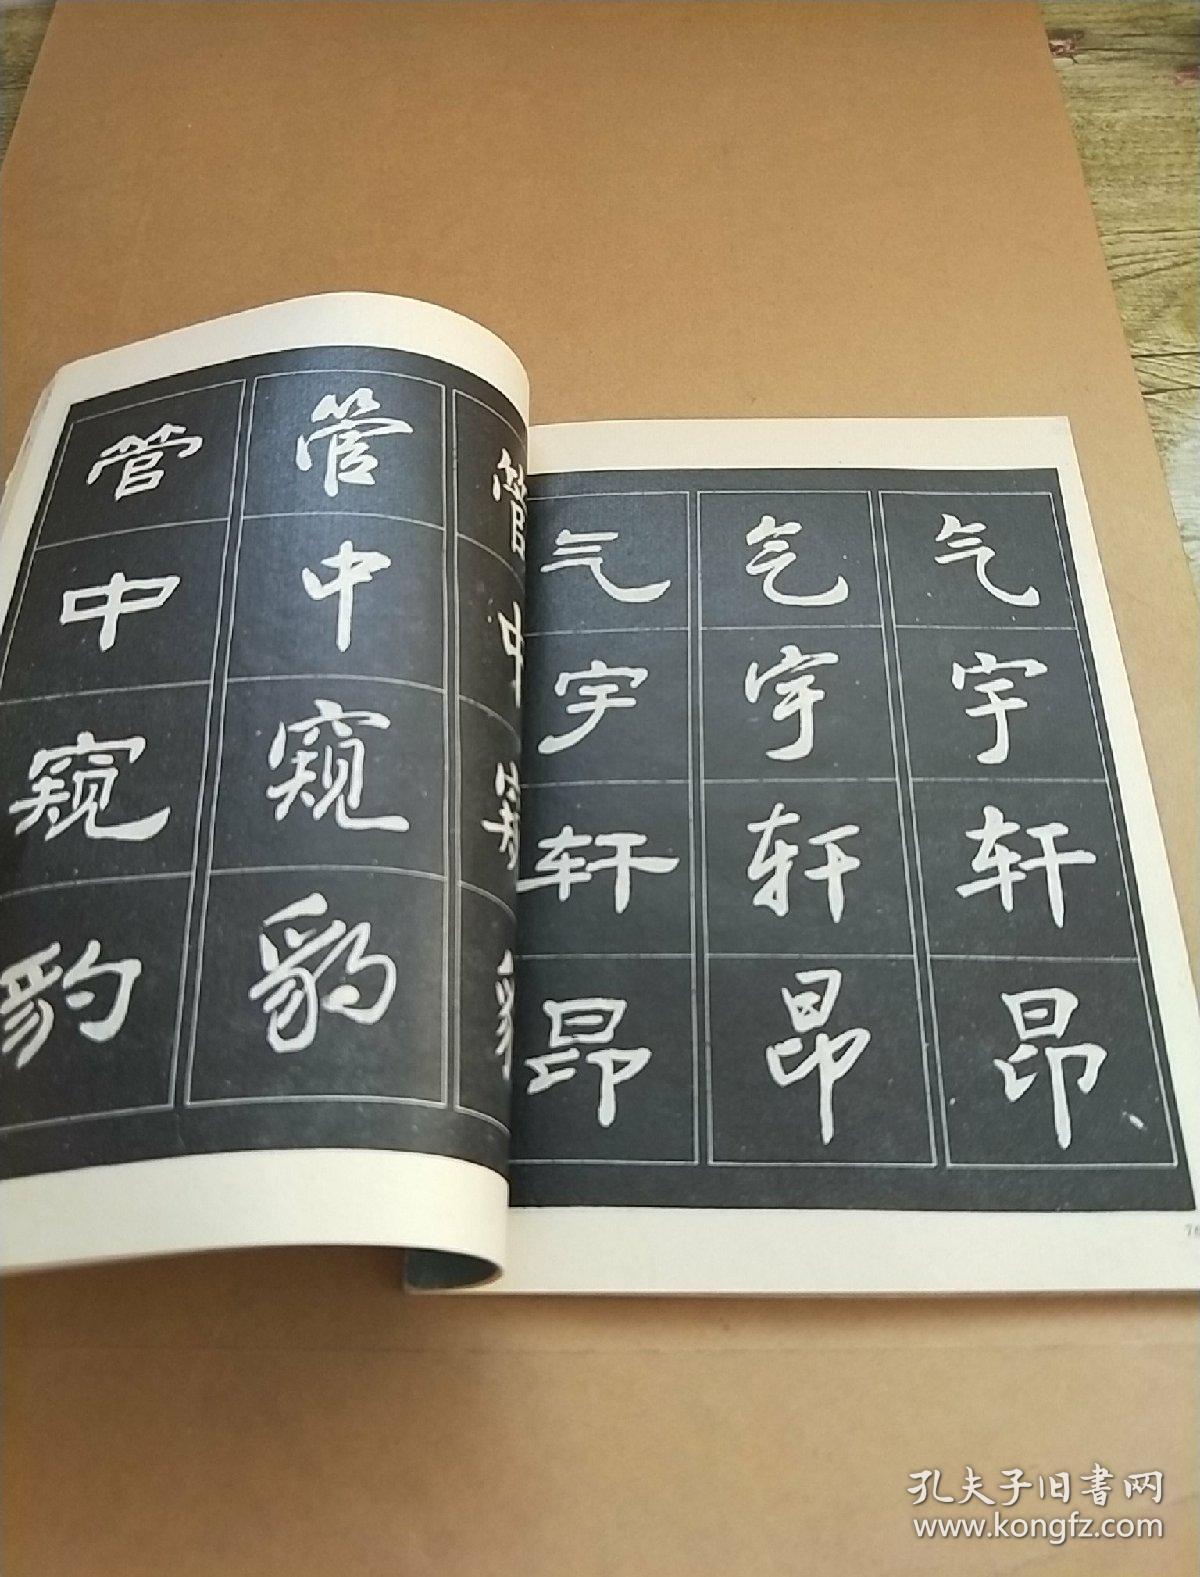 管中窥豹
管中窥豹
管中窥豹
气宇轩昂
气宇轩昂
气宇轩昂
孔夫子旧書网
www.kongfz.com